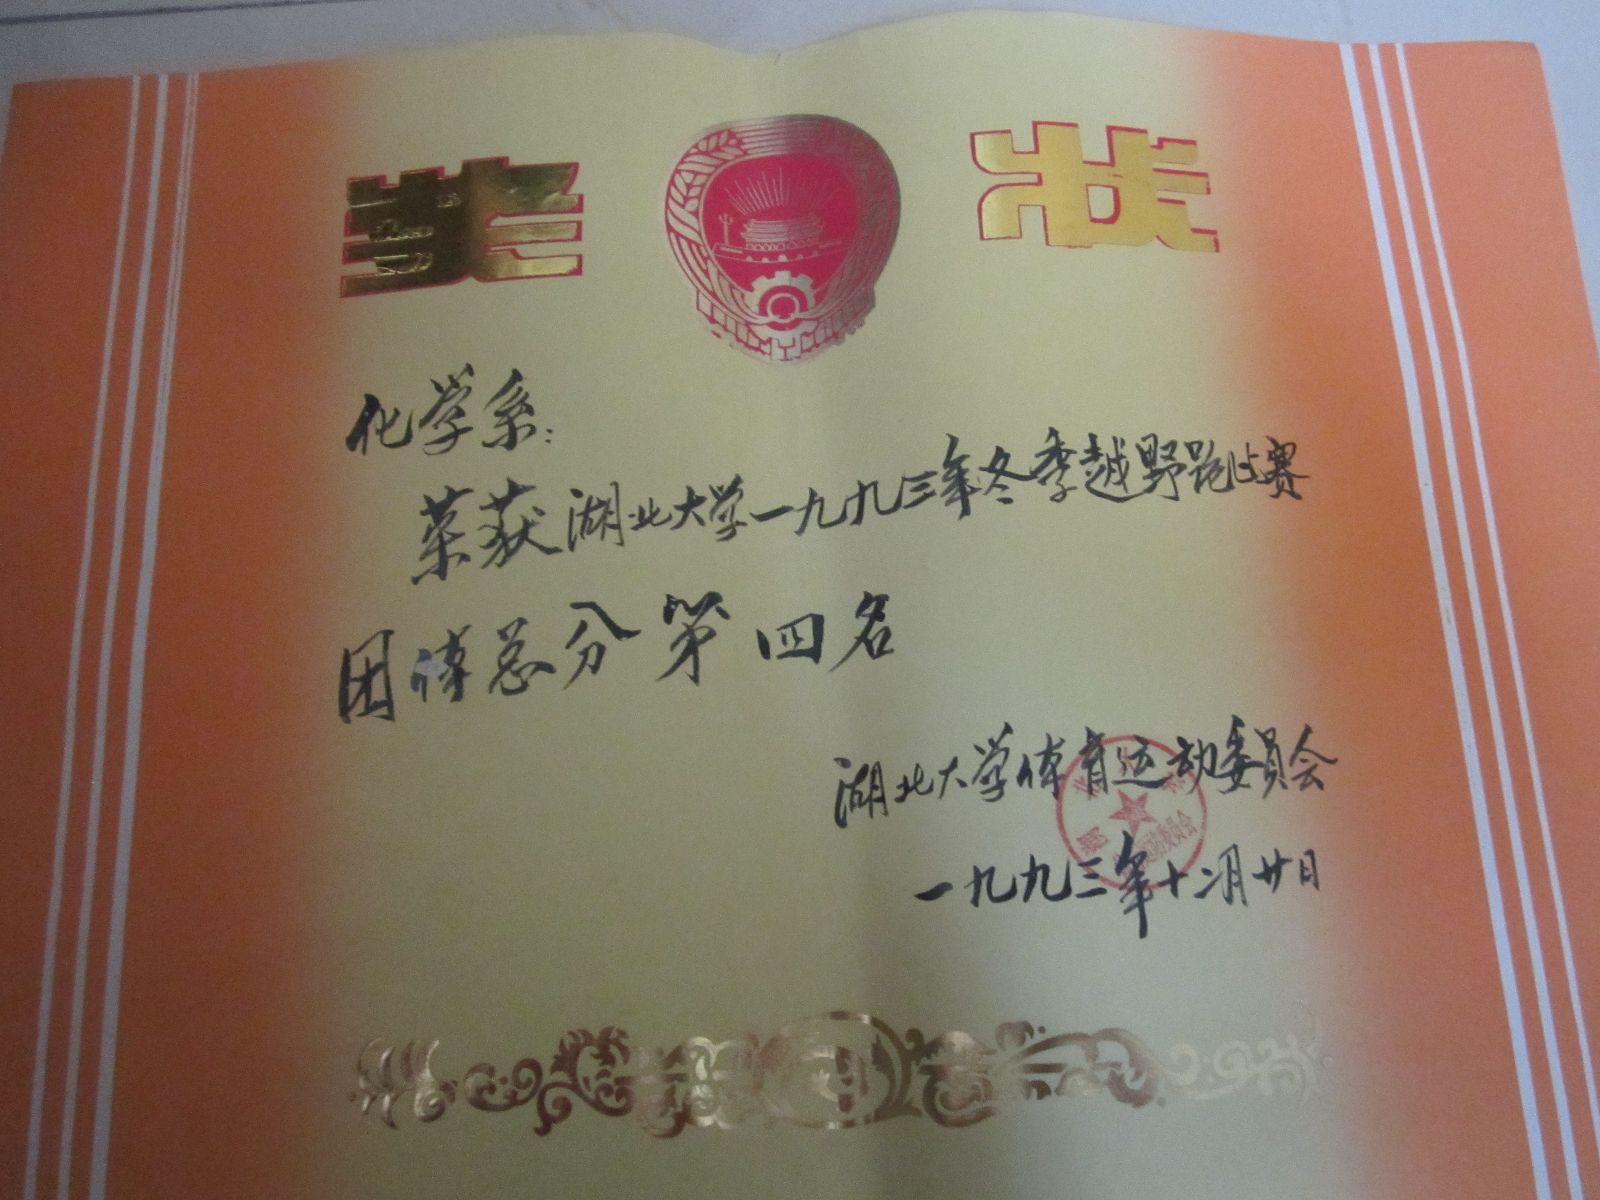 奖状
化学系：
荣获湖北大学一九九三年冬季越野跑比赛
团体总分第四名
湖北大学体育运动委员会
一九九三年十二月廿日